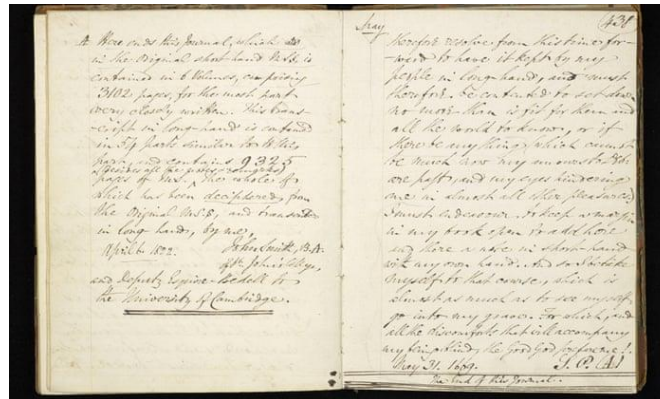 A Here ends this Journal, which is
in the Original short-hand M.S. is
contained in 6 Volumes, comprising
3102 pages, for the most part
very closely written. This trans-
-cript in long-hand is contained
in 54 parts similar to this
part, and contains 9325
pages of M.S., the whole of
which has been deciphered, from
the Original M.S.S., and transcribed
in long hand, by me,
April 6 1822. John Smith, B.A.
of St. John's College,
and Deputy Esquire-Bedell to
the University of Cambridge.
May
therefore resolve from this time for-
-ward to have it kept by my
people in long-hand, and must
therefore be contented to set down
no more than is fit for them and
all the world to know, or if
there be any thing, which cannot
be much now my amours to Deb
are past, and my eyes hindering
me in almost all other pleasures,
I must endeavour to keep a margin
in my book open to add here
and there a note in short-hand
with my own hand. And so I betake
myself to that course, which is
almost as much as to see myself
go into my grave: for which, and
all the discomforts that will accompany
my being blind, the Good God prepare me!
May 31. 1669. S.P. (A)
The End of this Journal.